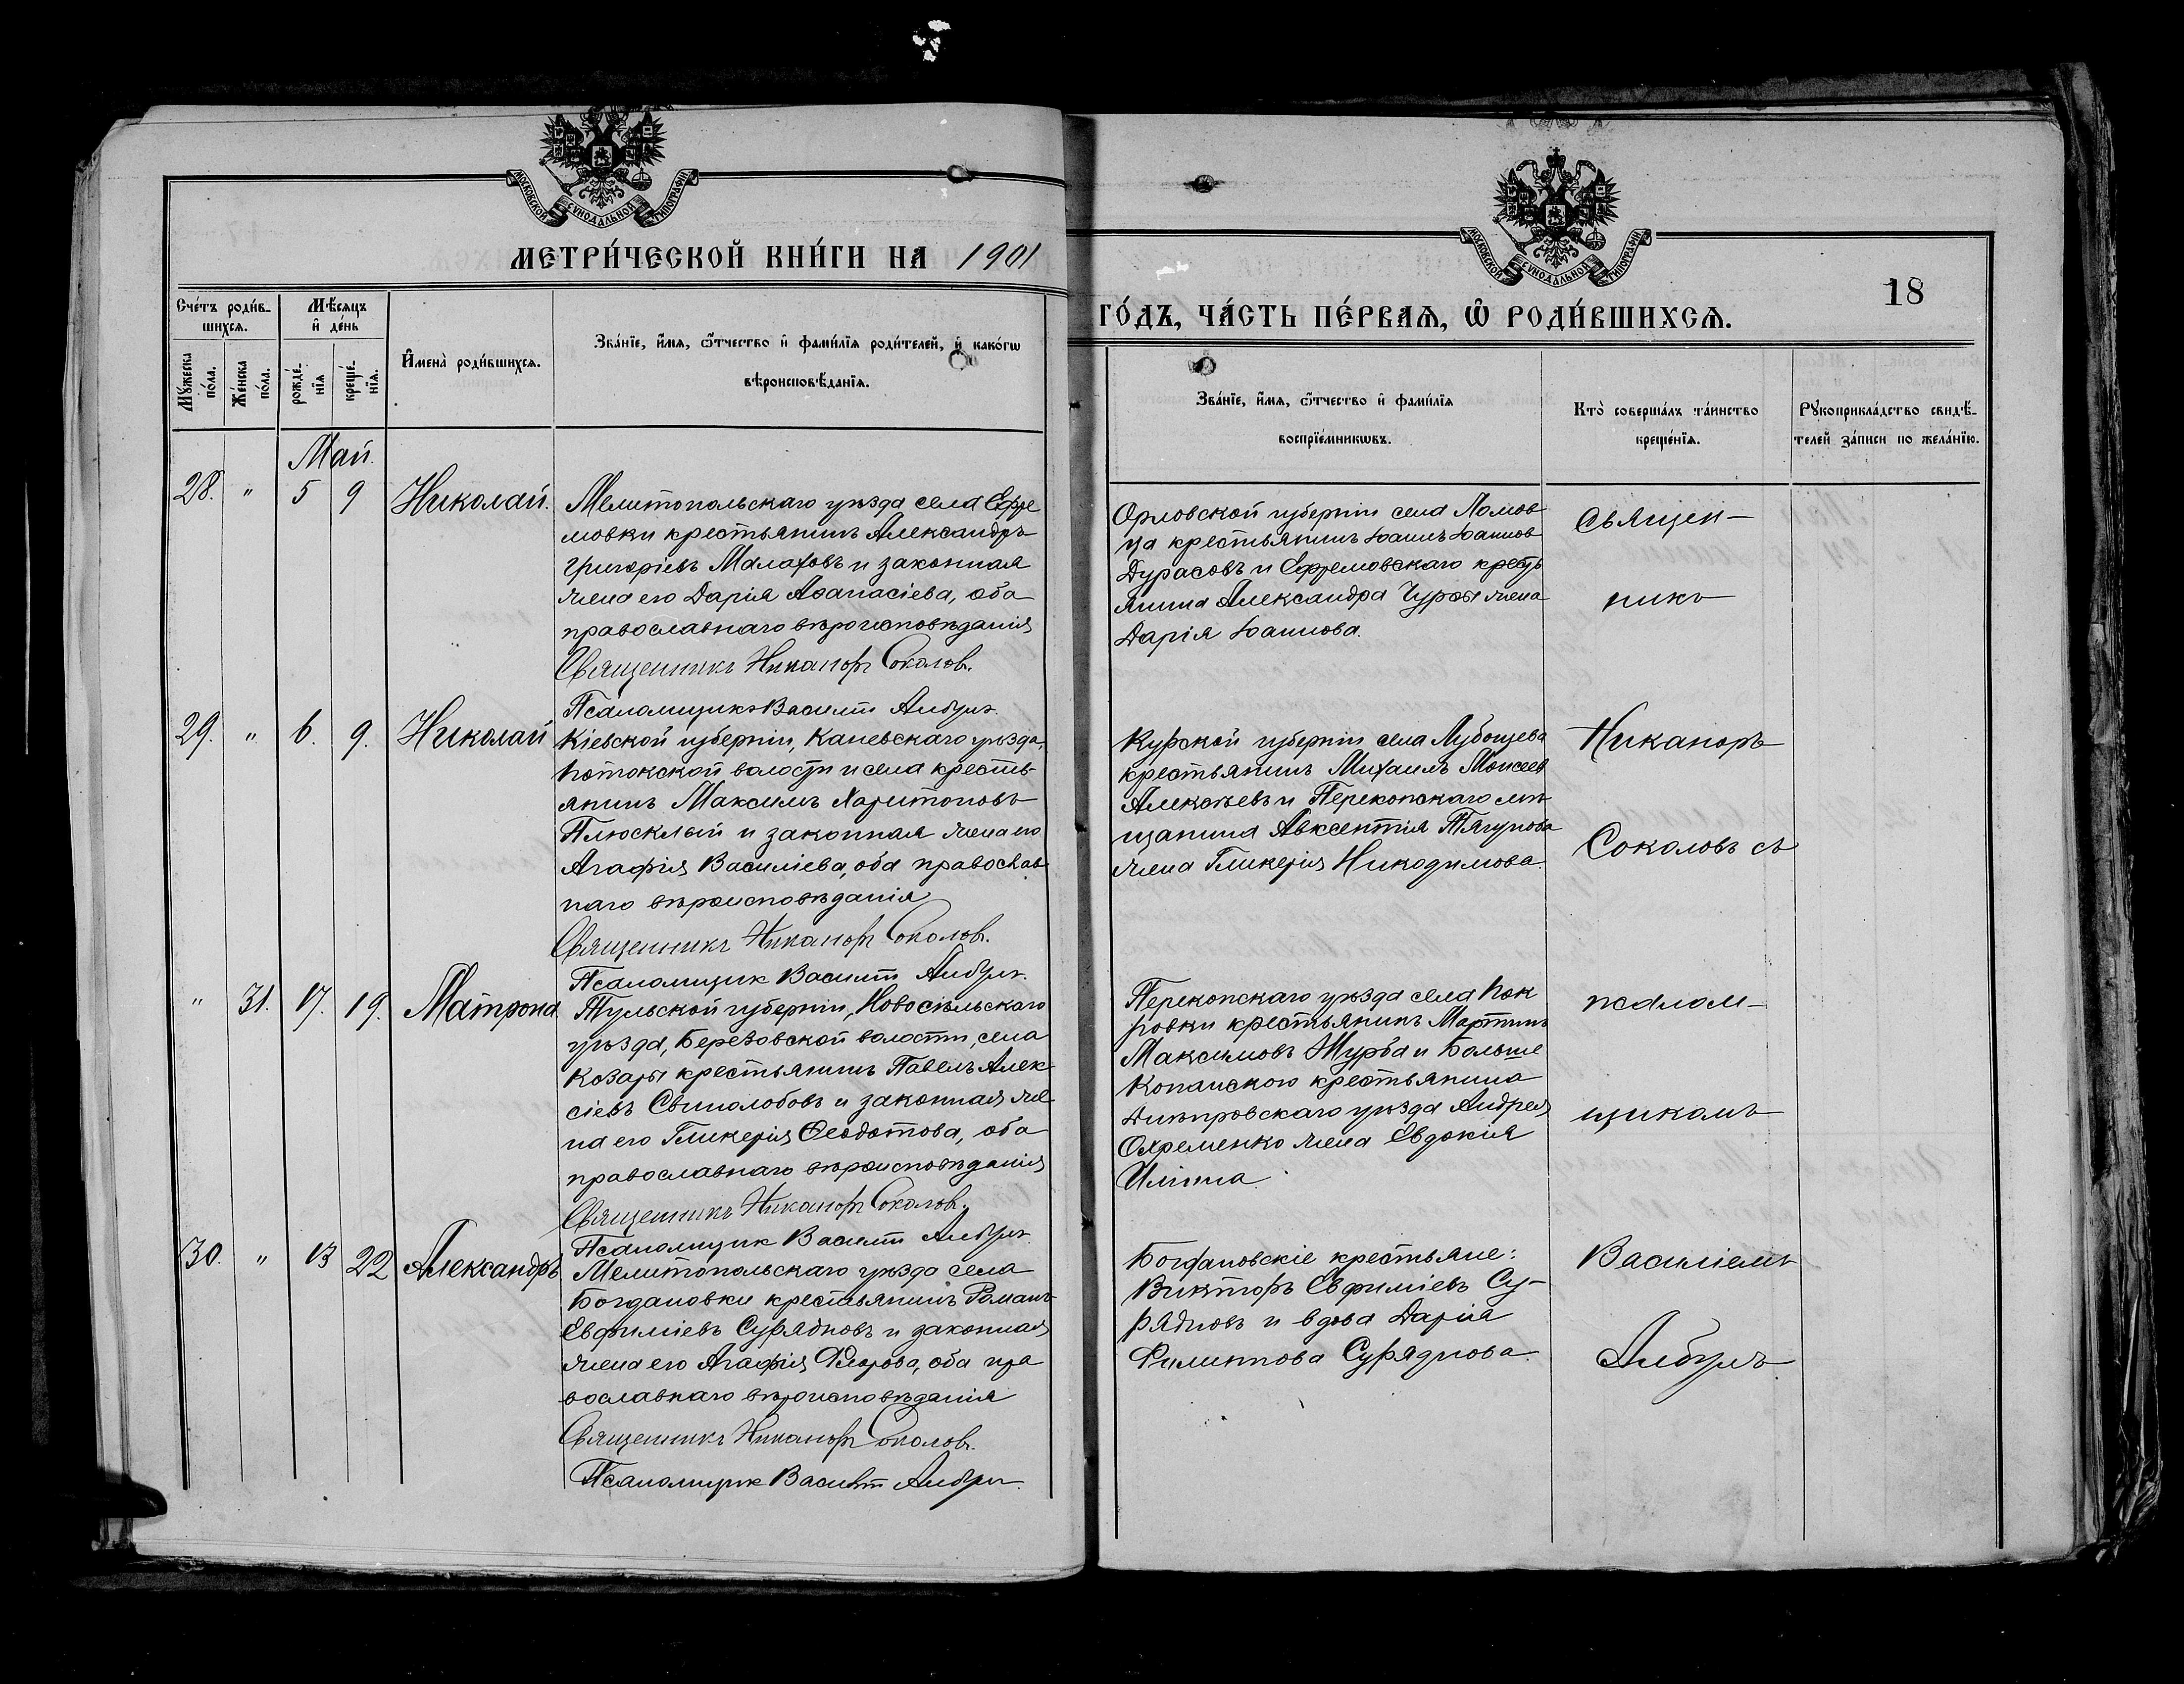 МОСКОВСКОЙ СѴНОДАЛЬНОЙ ТИПОГРАФІИ
МЕТРИ́ЧЕСКОЙ КНИ́ГИ НА 1901
Счéтъ роди́вшихся.
Мѣ́сяцъ и҆ дéнь
Мꙋ́жеска пóла.
Жéнска пóла.
рождé-нїя
крещé-нїя.
И҆мена̀ роди́вшихся.
Звáнїе, и҆́мя, ѻ҆́тчество и҆ фами́лїя роди́телей, и҆ какóгѡ
вѣроисповѣ́данїя.
Май.
28. " 5 9 Николай.
Мелитопольскаго уѣзда села Ефре
мовки крестьянинъ Александръ
Григоріевъ Малаховъ и законная
жена его Дарія Аѳанасіева, оба
православнаго вѣроисповѣданія
Священникъ Никаноръ Соколовъ.
Псаломщикъ Василій
29. " 6. 9. Николай
Кіевской губерніи, Каневскаго уѣзда,
Потокской волости и села кресть-
янинъ Максимъ Харитоновъ
Плюсклый и законная жена его
Агафія Василіева, оба православ
наго вѣроисповѣданія
Священникъ Никаноръ Соколовъ.
Псаломщик Василій
" 31. 17. 19. Матрона
Тульской губерніи, Новосильскаго
уѣзда, Березовской волости, села
Козары крестьянинъ Павелъ Алек
сіевъ Свинолобовъ и законная же
на его Гликерія Ѳеодотова, оба
православнаго вѣроисповѣданія
Священникъ Никаноръ Соколовъ.
Псаломщик Василій
30. " 13 22 Александръ
Мелитопольскаго уѣзда села
Богдановки крестьянинъ Романъ
Евфиміевъ Сурядновъ и законная
жена его Агафія оба пра
вославнаго вѣроисповѣданія
Священникъ Никаноръ Соколовъ.
Псаломщик Василій
МОСКОВСКОЙ СѴНОДАЛЬНОЙ ТИПОГРАФІИ
18
ГÓДЪ, ЧÁСТЬ ПÉРВАЯ, Ѡ҆ РОДИ́ВШИХСЯ.
Звáнїе, и҆́мя, ѻ҆́тчество и҆ фами́лїя
воспрїéмникѡвъ.
Ктò совершáлъ тáинство
крещéнїя.
Рꙋкоприклáдство свидѣ́-
телей зáписи по желáнїю.
Орловской губерніи села Ломов
ца крестьянинъ Іоаннъ Іоаннов
Дурасовъ и Ефремовскаго кресть
янина Александра жена
Дарія Іоаннова.
Священ-
никъ
Курской губерніи села
крестьянинъ Михаилъ Моисеев
Алексѣевъ и Перекопскаго мѣ
щанина Авксентія Тягунова
жена Гликерія Никодимова.
Никаноръ
Соколовъ съ
Перекопскаго уѣзда села Пок
ровки крестьянинъ Мартинъ
Максимовъ Журба и Больше
Копанского крестьянина
Днѣпровскаго уѣзда Андрея
Охременко жена Евдокія
Ильина.
псалом-
щикомъ
Богдановскіе крестьяне:
Викторъ Евфиміевъ Су-
рядновъ и вдова Дарія
Филиппова Суряднова.
Василіемъ